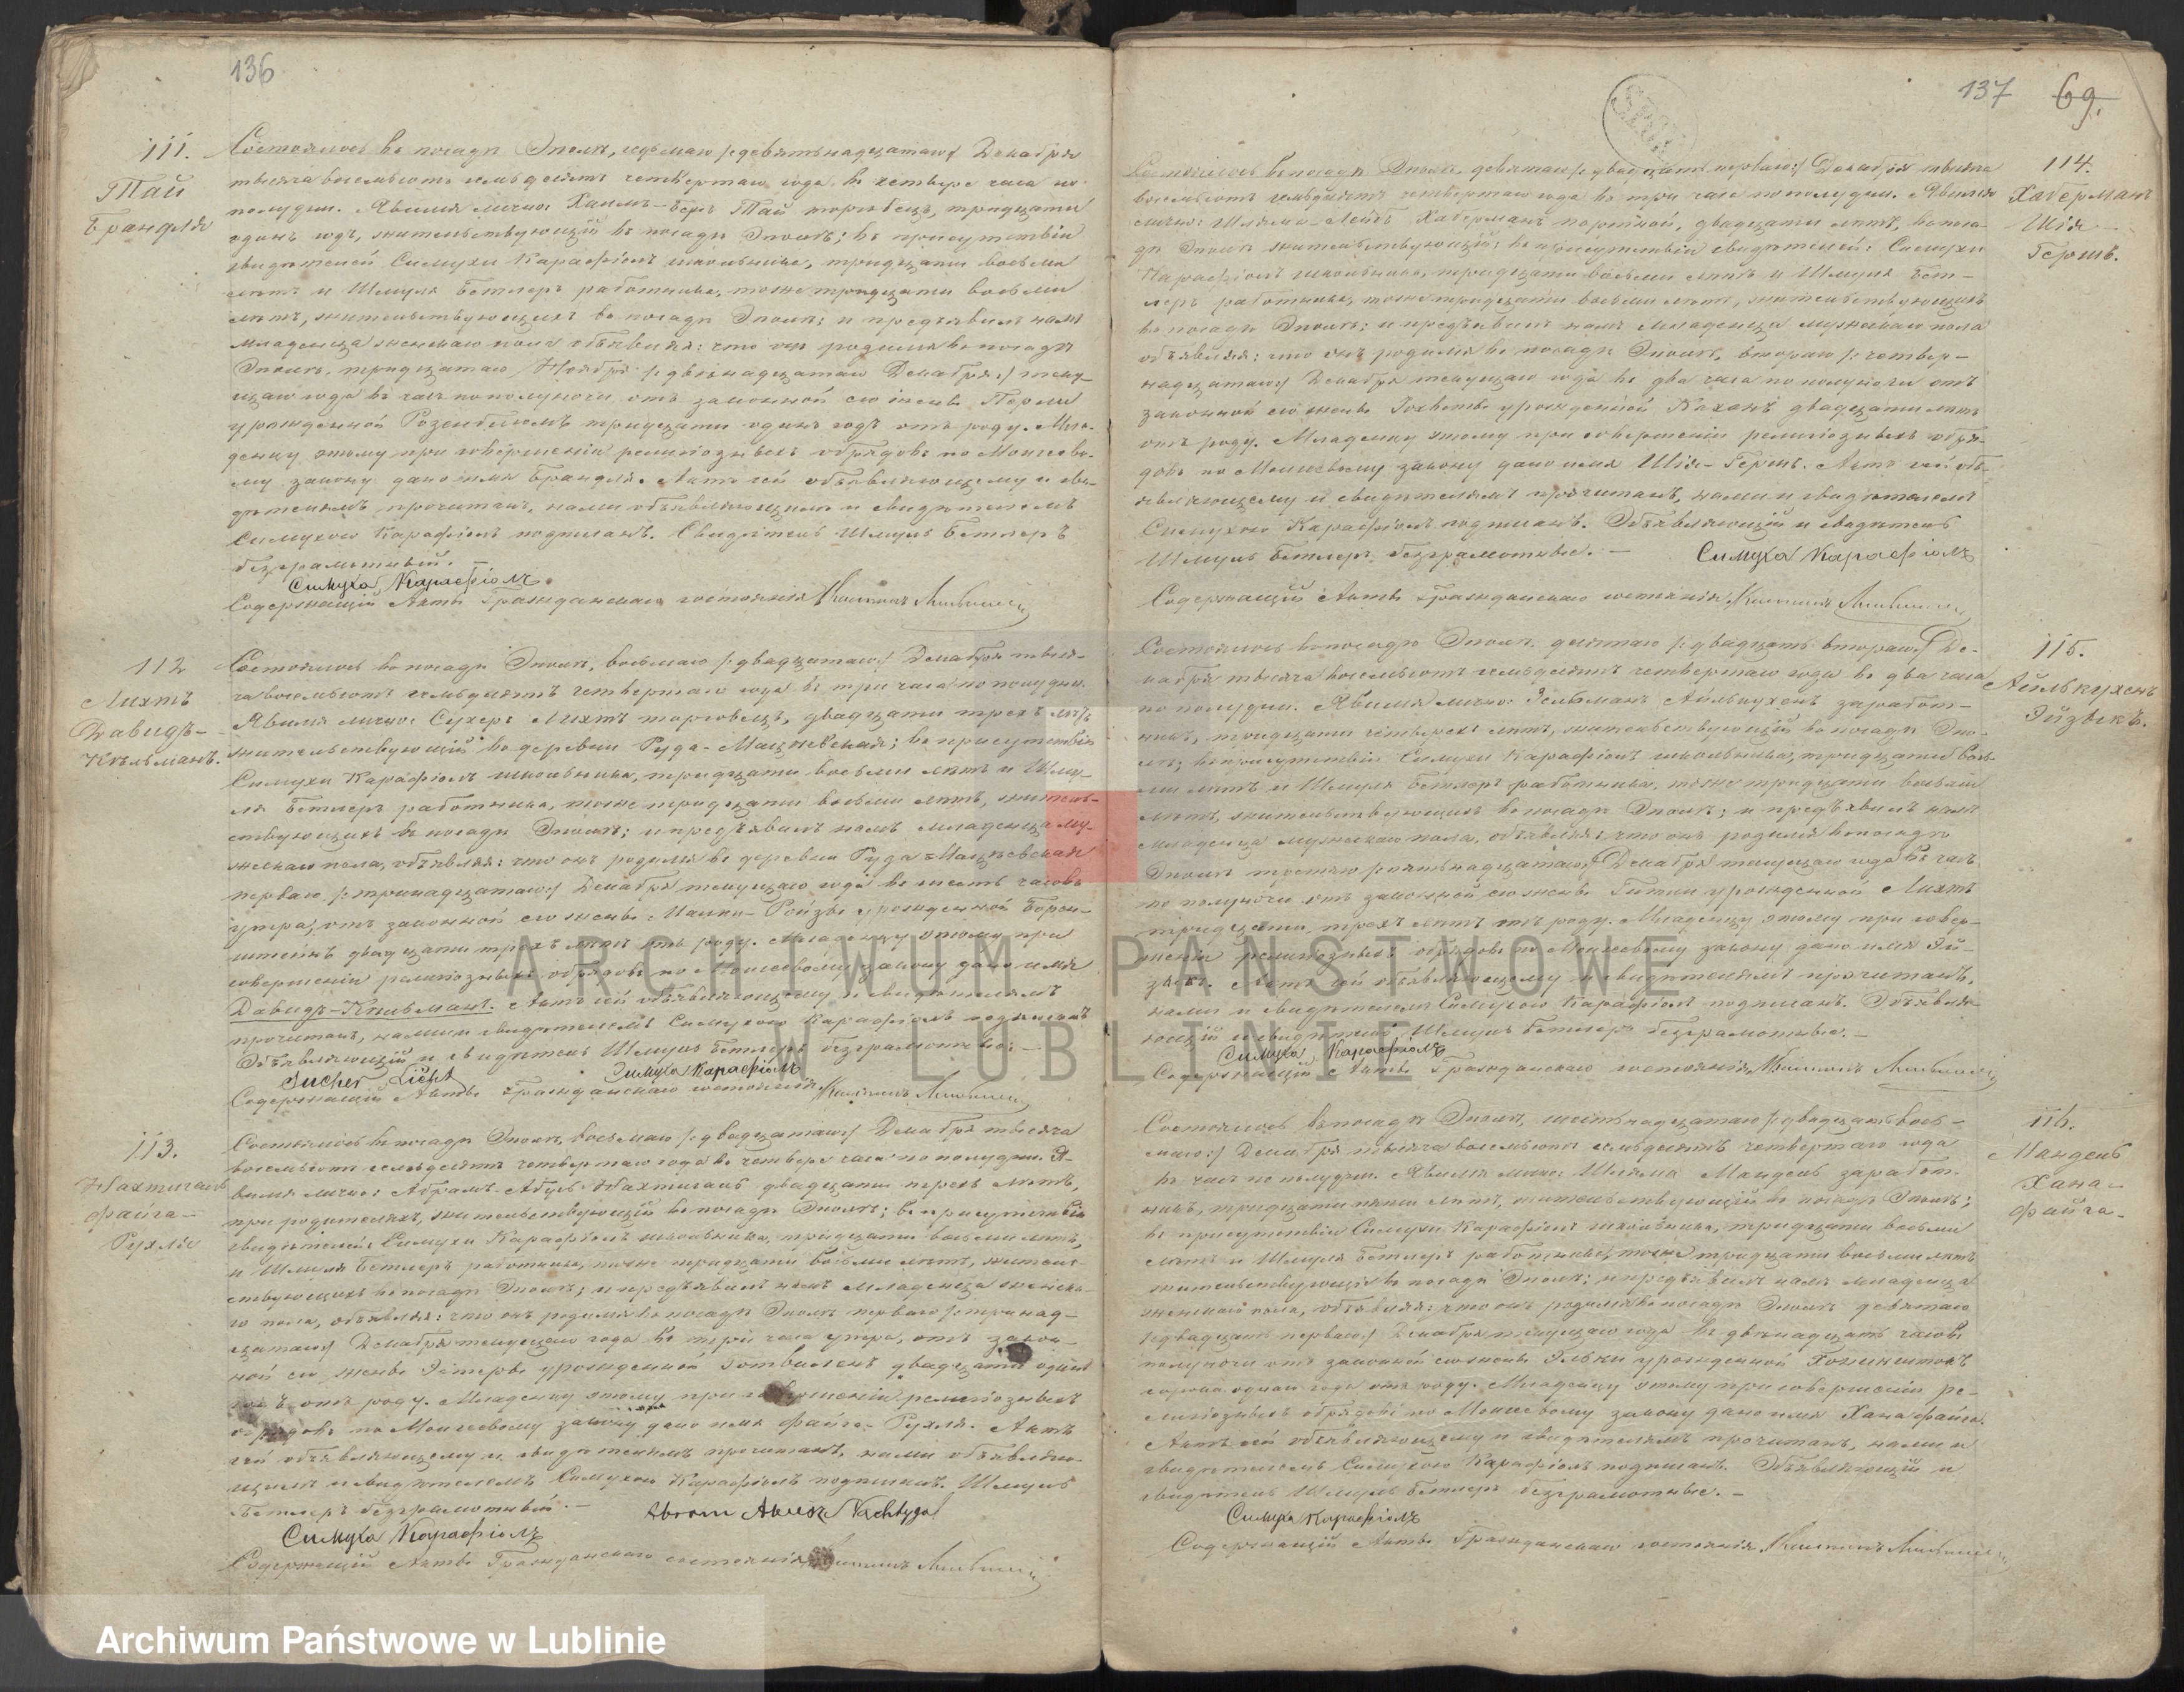 136
111.
Тай
Брандля
Состоялось въ посадѣ Ополѣ, седьмаго /:девятьнадцатаго:/ Декабря
тысяча восемьсотъ семьдесятъ четвертаго года, въ четыре часа по
полудни. Явился лично: Хаимъ-Беръ Тай торговецъ, тридцати
одинъ годъ, жительствующій въ посадѣ Ополѣ; въ присутствіи
свидѣтелей Симухи Карафіолъ школьника, тридцати восьми
лѣтъ и Шмуля Бетлеръ работника, тоже тридцати восьми
лѣтъ, жительствующихъ въ посадѣ Ополѣ; и предъявилъ намъ
младенца женскаго пола объявляя: что онъ родился въ посадѣ
Ополѣ, тридцатаго Ноября /:двѣнадцатаго Декабря:/ теку-
щаго года въ часъ по полуночи, отъ законной его жены Перли
урожденной Розенблюмъ тридцати одинъ годъ отъ роду. Мла-
денцу этому при совершеніи религіозныхъ обрядовъ по Моисеево-
му закону дано имя Брандля. Актъ сей объявляющему и сви-
дѣтелямъ прочитанъ, нами объявляющимъ и свидѣтелемъ
Симухою Карафіолъ подписанъ. Свидѣтель Шмуль Бетлеръ
безграмотный. —
Симуха Карафіолъ
Содержащій Акты Гражданскаго состоянія
112
Лихтъ
Давидъ-
Кѣльманъ.
Состоялось въ посадѣ Ополѣ, восьмаго /:двадцатаго:/ Декабря тыся-
ча восемьсотъ семьдесятъ четвертаго года въ три часа по полудни.
Явился лично: Сухеръ Лихтъ торговецъ, двадцати трехъ лѣтъ
жительствующій въ деревни Руда-Мацѣевская; въ присутствіи
Симухи Карафіолъ школьника, тридцати восьми лѣтъ и Шму-
ля Бетлеръ работника, тоже тридцати восьми лѣтъ, житель-
ствующихъ въ посадѣ Ополѣ; и предъявилъ намъ младенца му-
жескаго пола, объявляя: что онъ родился въ деревни Руда Мацѣевская
перваго /:тринадцатаго:/ Декабря текущаго года въ шесть часовъ
утра, отъ законной его жены Малки-Ройзы урожденной Борен-
штейнъ двадцати трехъ лѣтъ отъ роду. Младенцу этому при
совершеніи религіозныхъ обрядовъ по Моисеевому закону дано имя
Давидъ-Кѣльманъ. Актъ сей объявляющему и свидѣтелямъ
прочитанъ, нами и свидѣтелемъ Симухою Карафіолъ подписанъ
Объявляющій и свидѣтель Шмуль Бетлеръ безграмотные. —
Sucher Licht Симуха Карафіолъ
Содержащій Акты Гражданскаго состоянія
113.
Нахтигаль
Файга-
Рухля
Состоялось въ посадѣ Ополѣ, восьмаго /:двадцатаго:/ Декабря тысяча
восемьсотъ семьдесятъ четвертаго года въ четыре часа по полудни. Я-
вился лично: Абрамъ-Абусь Нахтигаль двадцати трехъ лѣтъ,
при родителяхъ, жительствующій въ посадѣ Ополѣ; въ присутствіи
свидѣтелей: Симухи Карафіолъ школьника, тридцати восьми лѣтъ,
и Шмуля Бетлеръ работника, тоже тридцати восьми лѣтъ, житель-
ствующихъ въ посадѣ Ополѣ; и предъявилъ намъ младенца женска-
го пола, объявляя: что онъ родился въ посадѣ Ополѣ перваго /:тринад-
цатаго:/ Декабря текущаго года въ три часа утра, отъ закон-
ной его жены Эстеры урожденной двадцати одинъ
годъ отъ роду. Младенцу этому при совершеніи религіозныхъ
обрядовъ по Моисеевому закону дано имя Файга-Рухля. Актъ
сей объявляющему и свидѣтелямъ прочитанъ, нами объявляю-
щимъ и свидѣтелемъ Симухою Карафіолъ подписанъ. Шмуль
Бетлеръ безграмотный. —
Abram Abus Nachtygal
Симуха Карафіолъ
Содержащій Акты Гражданскаго состоянія
137 69.
114.
Хаберманъ
Шія-
Гершъ.
Состоялось въ посадѣ Ополѣ, девятаго /:двадцать перваго:/ Декабря тысяча
восемьсотъ семьдесятъ четвертаго года въ три часа по полудни. Явился
лично: Шляма-Лейбъ Хаберманъ портной, двадцати лѣтъ, въ поса-
дѣ Ополѣ жительствующій; въ присутствіи свидѣтелей: Симухи
Карафіолъ школьника, тридцати восьми лѣтъ и Шмуля Бет-
леръ работника, тоже тридцати восьми лѣтъ, жительствующихъ
въ посадѣ Ополѣ; и предъявилъ намъ младенца мужескаго пола
объявляя: что онъ родился въ посадѣ Ополѣ, втораго /:четвер-
надцатаго:/ Декабря текущаго года въ два часа по полуночи отъ
законной его жены урожденной Каханъ двадцати лѣтъ
отъ роду. Младенцу этому при совершеніи религіозныхъ обря-
довъ по Моисеевому закону дано имя Шія-Гершъ. Актъ сей объ-
являющему и свидѣтелямъ прочитанъ, нами и свидѣтелемъ
Симухою Карафіолъ подписанъ. Объявляющій и свидѣтель
Шмуль Бетлеръ безграмотные. — Симуха Карафіолъ
Содержащій Акты Гражданскаго состоянія
115.
Айлькухенъ
Эйзыкъ.
Состоялось въ посадѣ Ополѣ, десятаго /:двадцать втораго:/ Де-
кабря тысяча восемьсотъ семьдесятъ четвертаго года въ два часа
по полудни. Явился лично: Зельманъ Айлькухенъ заработ-
никъ, тридцати четырехъ лѣтъ, жительствующій въ посадѣ Опо-
лѣ; въ присутствіи Симухи Карафіолъ школьника, тридцати вось-
ми лѣтъ и Шмуля Бетлеръ работника, тоже тридцати восьми
лѣтъ, жительствующихъ въ посадѣ Ополѣ; и предъявилъ намъ
младенца мужескаго пола, объявляя: что онъ родился въ посадѣ
Ополѣ третьяго /:пятьнадцатаго:/ Декабря текущаго года въ часъ
по полуночи отъ законной его жены Гитли урожденной Лихтъ
тридцати трехъ лѣтъ отъ роду. Младенцу этому при совер-
шеніи религіозныхъ обрядовъ по Моисеевому закону дано имя Эй-
зыкъ. Актъ сей объявляющему и свидѣтелямъ прочитанъ,
нами и свидѣтелемъ Симухою Карафіолъ подписанъ. Объявля-
ющій и свидѣтель Шмуль Бетлеръ безграмотные. —
Симуха Карафіолъ
Содержащій Акты Гражданскаго состоянія
116.
Мандель
Хана-
Файга-
Состоялось въ посадѣ Ополѣ, шестьнадцатаго /:двадцать вось-
маго:/ Декабря тысяча восемьсотъ семьдесятъ четвертаго года
въ часъ по полудни. Явился лично: Шлема Мандель заработ-
никъ, тридцати пяти лѣтъ, жительствующій въ посадѣ Ополѣ;
въ присутствіи Симухи Карафіолъ школьника, тридцати восьми
лѣтъ и Шмуля Бетлеръ работника, тоже тридцати восьми лѣтъ
жительствующихъ въ посадѣ Ополѣ; и предъявилъ намъ младенца
женскаго пола, объявляя: что онъ родился въ посадѣ Ополѣ девятаго
/:двадцать перваго:/ Декабря текущаго года въ двѣнадцать часовъ
полуночи отъ законной его жены Эльки урожденной
сорока одинъ годъ отъ роду. Младенцу этому при совершеніи ре-
лигіозныхъ обрядовъ по Моисеевому закону дано имя Хана Файга.
Актъ сей объявляющему и свидѣтелямъ прочитанъ, нами и
свидѣтелемъ Симухою Карафіолъ подписанъ. Объявляющій и
свидѣтель Шмуль Бетлеръ безграмотные. —
Симуха Карафіолъ
Содержащій Акты Гражданскаго состоянія
ARCHIWUM PAŃSTWOWE
W LUBLINIE
Archiwum Państwowe w Lublinie